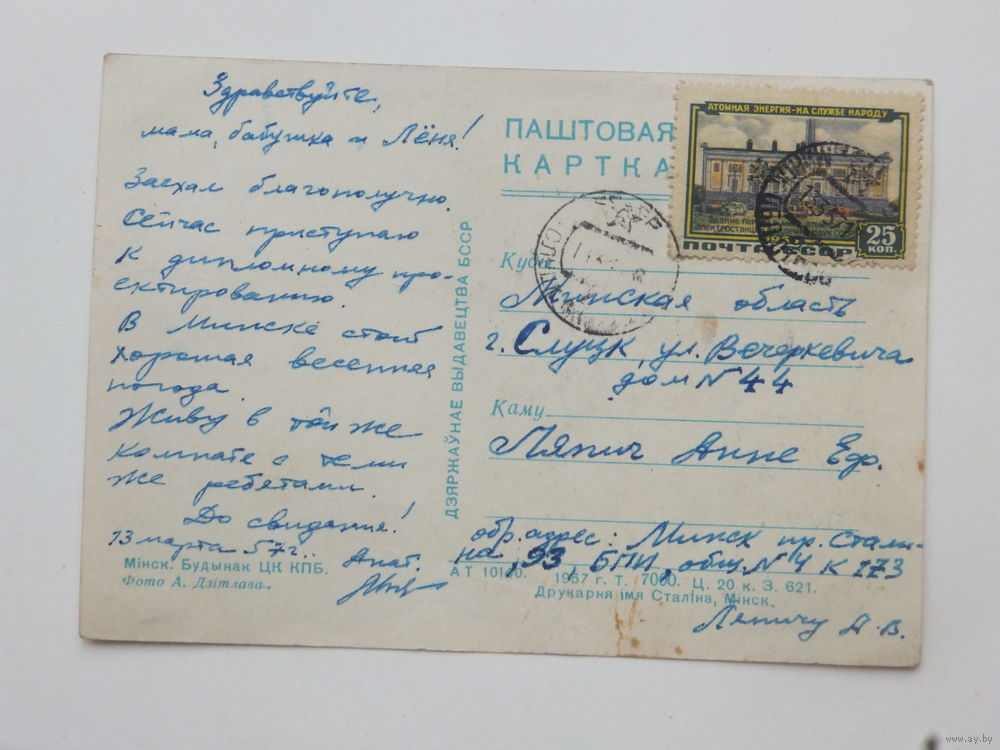 Здравствуйте,
мама, бабушка и Лёня!
Заехал благополучно.
Сейчас приступаю
к дипломному про-
ектированию.
В Минске стоит
хорошая весенняя
погода.
Живу в той же
комнате с теми
же ребятами.
До свидания!
13 марта 57 г.. Анат.
Мінск. Будынак ЦК КПБ.
Фото А. Дзітлава.
ДЗЯРЖАЎНАЕ ВЫДАВЕЦТВА БССР
ПАШТОВАЯ
КАРТКА
АТОМНАЯ ЭНЕРГИЯ-НА СЛУЖБЕ НАРОДУ
Здание
ПОЧТА СССР
25
КОП.
Куды
Минская область
г. Слуцк, ул. Вечеркевича
дом N 44
Каму
Ляпич Анне Еф.
обр. адрес: Минск пр. Стали-
на, 93, БПИ, общ. N 4 к 173
АТ 10140. 1957 г. Т. 7000. Ц. 20 к. З. 621.
Друкарня імя Сталіна, Мінск.
Ляпичу А. В.
www.ay.by